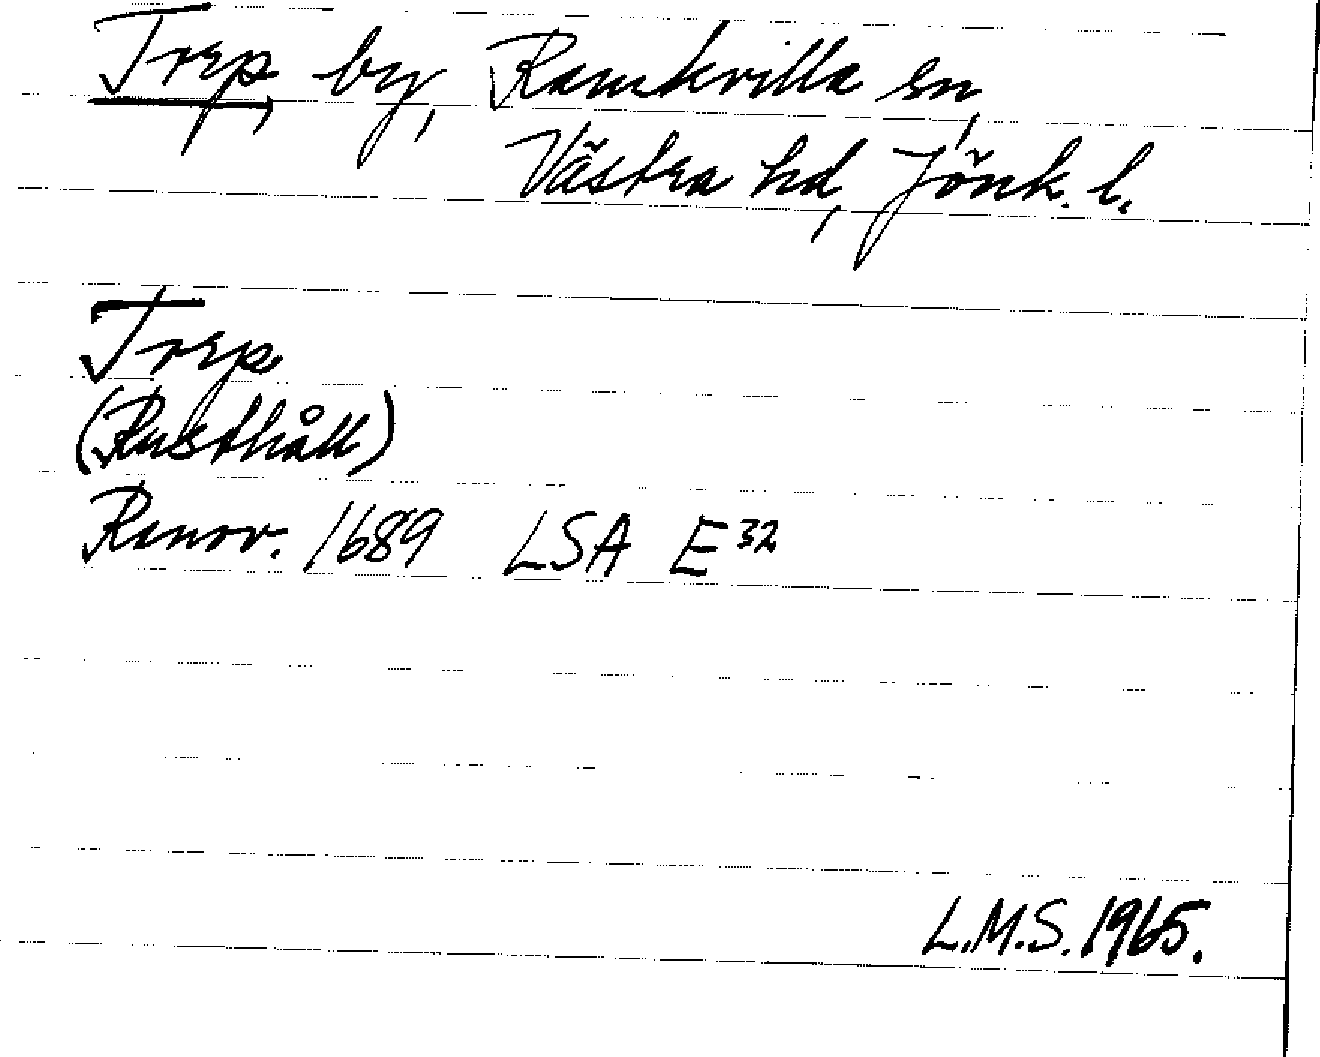 Trep, by, Ramkvilla sn,
Västra hd, Jönk. l.
Trep
(Rusthåll)
Renov. 1689 LSA E 32
L.M.S. 1965.